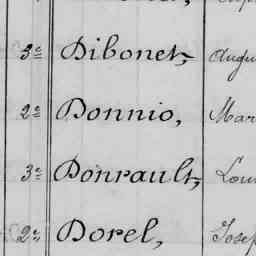 3e Dibonet, Augu
2e Donnio, Mar
3e Donrault, Lou
2e Dorel, Josep